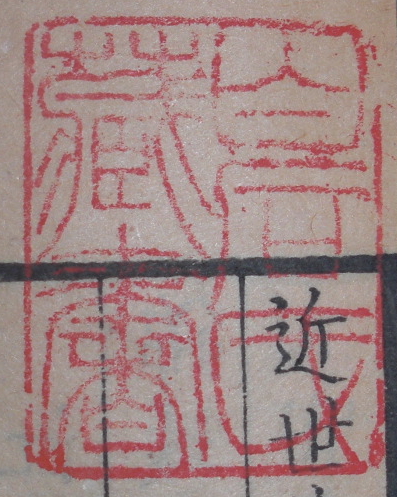 倉氏
藏書
近世